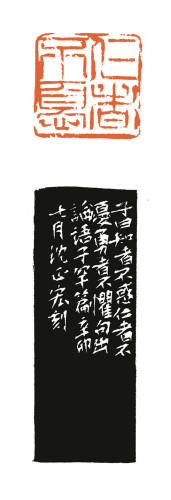 仁者
不憂
子曰知者不惑仁者不
憂勇者不懼句出
論語子罕篇辛卯
七月沈正宏刻